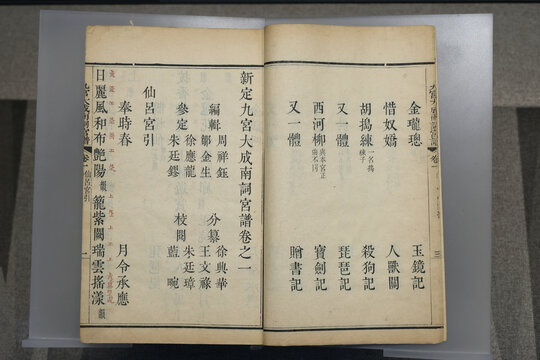 金瓏璁 玉鏡記
惜奴嬌 人獸關
胡搗練 一名搗練子 殺狗記
又一體 琵琶記
西河柳 與本宮正曲不同 寶劍記
又一體 贈書記
三
新定九宮大成南詞宮譜卷之一
編輯 周祥鈺 鄒金生 分纂 徐興華 王文祿
參定 徐應龍 朱廷鏐 校閱 朱廷璋 藍畹
仙呂宮引
奉時春 月令承應
日麗風和布艷陽韻籠紫闕瑞雲搖漾韻
卷一 仙呂宮引 一